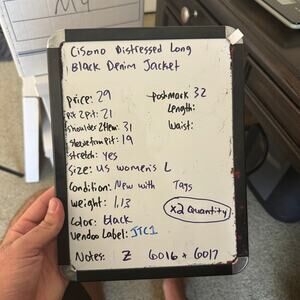 Cisono Distressed Long
Black Denim Jacket
price: 29
poshmark 32
pit 2 pit: 21
Length:
shoulder 2 Hem: 31
Waist:
sleeve from pit: 19
stretch: yes
Size: US women's L
Condition: New with Tags
weight: 1.13
x2 Quantity
Color: black
Vendoo Label: JTC1
Notes: Z 6016 + 6017